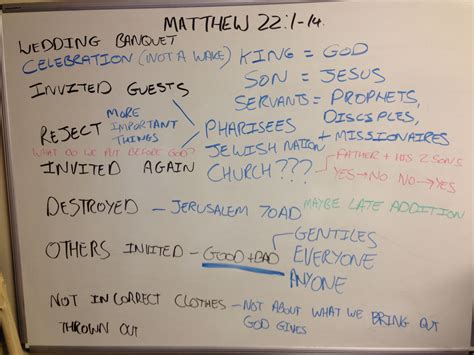 MATTHEW 22:1-14.
WEDDING BANQUET
CELEBRATION (NOT A WAKE)
KING = GOD
SON = JESUS
SERVANTS = PROPHETS,
DISCIPLES,
+ MISSIONAIRES
INVITED GUESTS
REJECT
MORE
IMPORTANT
THINGS
PHARISEES
JEWISH NATION
CHURCH???
WHAT DO WE PUT BEFORE GOD?
FATHER + HIS 2 SONS
YES→NO NO→YES
INVITED AGAIN
DESTROYED - JERUSALEM 70AD
MAYBE LATE ADDITION
OTHERS INVITED - GOOD + BAD
GENTILES
EVERYONE
ANYONE
NOT IN CORRECT CLOTHES - NOT ABOUT WHAT WE BRING BUT
GOD GIVES
THROWN OUT